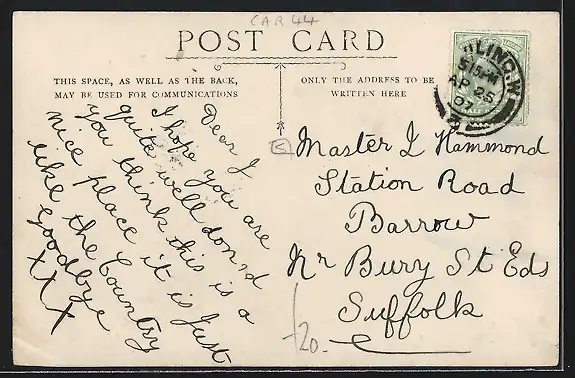 CAR 44
POST CARD
THIS SPACE, AS WELL AS THE BACK,
MAY BE USED FOR COMMUNICATIONS
ONLY THE ADDRESS TO BE
WRITTEN HERE
5.15 PM
AP 25
07
Dear J
I hope you are
quite well don'd
you think this is a
nice place it is Just
like the Country
goodbye
XXX
Master J Hammond
Station Road
Barrow
Nr Bury St Eds
Suffolk
£20.